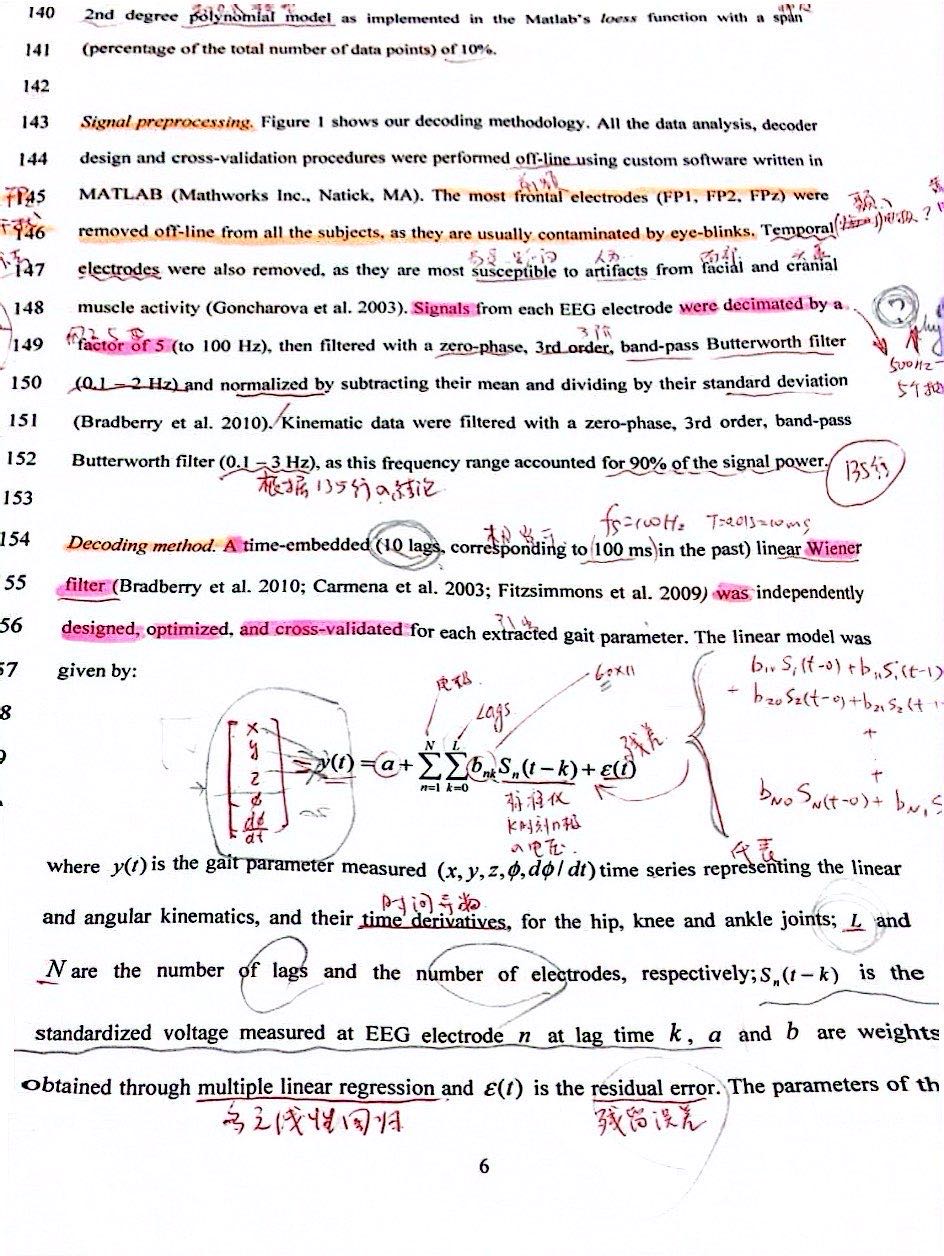 140 2nd degree polynomial model as implemented in the Matlab's loess function with a span
141 (percentage of the total number of data points) of 10%.
142
143 Signal preprocessing. Figure 1 shows our decoding methodology. All the data analysis, decoder
144 design and cross-validation procedures were performed off-line using custom software written in
145 MATLAB (Mathworks Inc., Natick, MA). The most frontal electrodes (FP1, FP2, FPz) were
146 removed off-line from all the subjects, as they are usually contaminated by eye-blinks. Temporal
147 electrodes were also removed, as they are most susceptible to artifacts from facial and cranial
人为
面部
148 muscle activity (Goncharova et al. 2003). Signals from each EEG electrode were decimated by a
?
3阶
149 factor of 5 (to 100 Hz), then filtered with a zero-phase, 3rd order, band-pass Butterworth filter
500Hz
150 (0.1 – 2 Hz) and normalized by subtracting their mean and dividing by their standard deviation
151 (Bradberry et al. 2010). Kinematic data were filtered with a zero-phase, 3rd order, band-pass
152 Butterworth filter (0.1 – 3 Hz), as this frequency range accounted for 90% of the signal power.
135行
根据135行的结论
153
fs=100Hz T=0.01s=10ms
相当于
154 Decoding method. A time-embedded (10 lags, corresponding to 100 ms in the past) linear Wiener
55 filter (Bradberry et al. 2010; Carmena et al. 2003; Fitzsimmons et al. 2009) was independently
56 designed, optimized, and cross-validated for each extracted gait parameter. The linear model was
57 given by:
电极
60×11
Lags
8
x
y
z
ϕ
dϕ/dt
y(t) = a + ∑ₙ₌₁ᴺ ∑ₖ₌₀ᴸ bₙₖSₙ(t − k) + ε(t)
残差
b₁₀S₁(t-0)+b₁₁S₁(t-1)
+ b₂₀S₂(t-0)+b₂₁S₂(t-1
+
+
b_N0 S_N(t-0)+ b_N1 S
标准化
k时刻n极
的电压.
代表
where y(t) is the gait parameter measured (x, y, z, ϕ, dϕ / dt) time series representing the linear
时间导数
and angular kinematics, and their time derivatives, for the hip, knee and ankle joints; L and
N are the number of lags and the number of electrodes, respectively; Sₙ(t − k) is the
standardized voltage measured at EEG electrode n at lag time k, a and b are weights
obtained through multiple linear regression and ε(t) is the residual error. The parameters of th
多元线性回归
残留误差
6